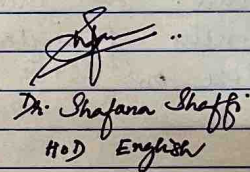 Dr. Shafana Shaffi
HOD English